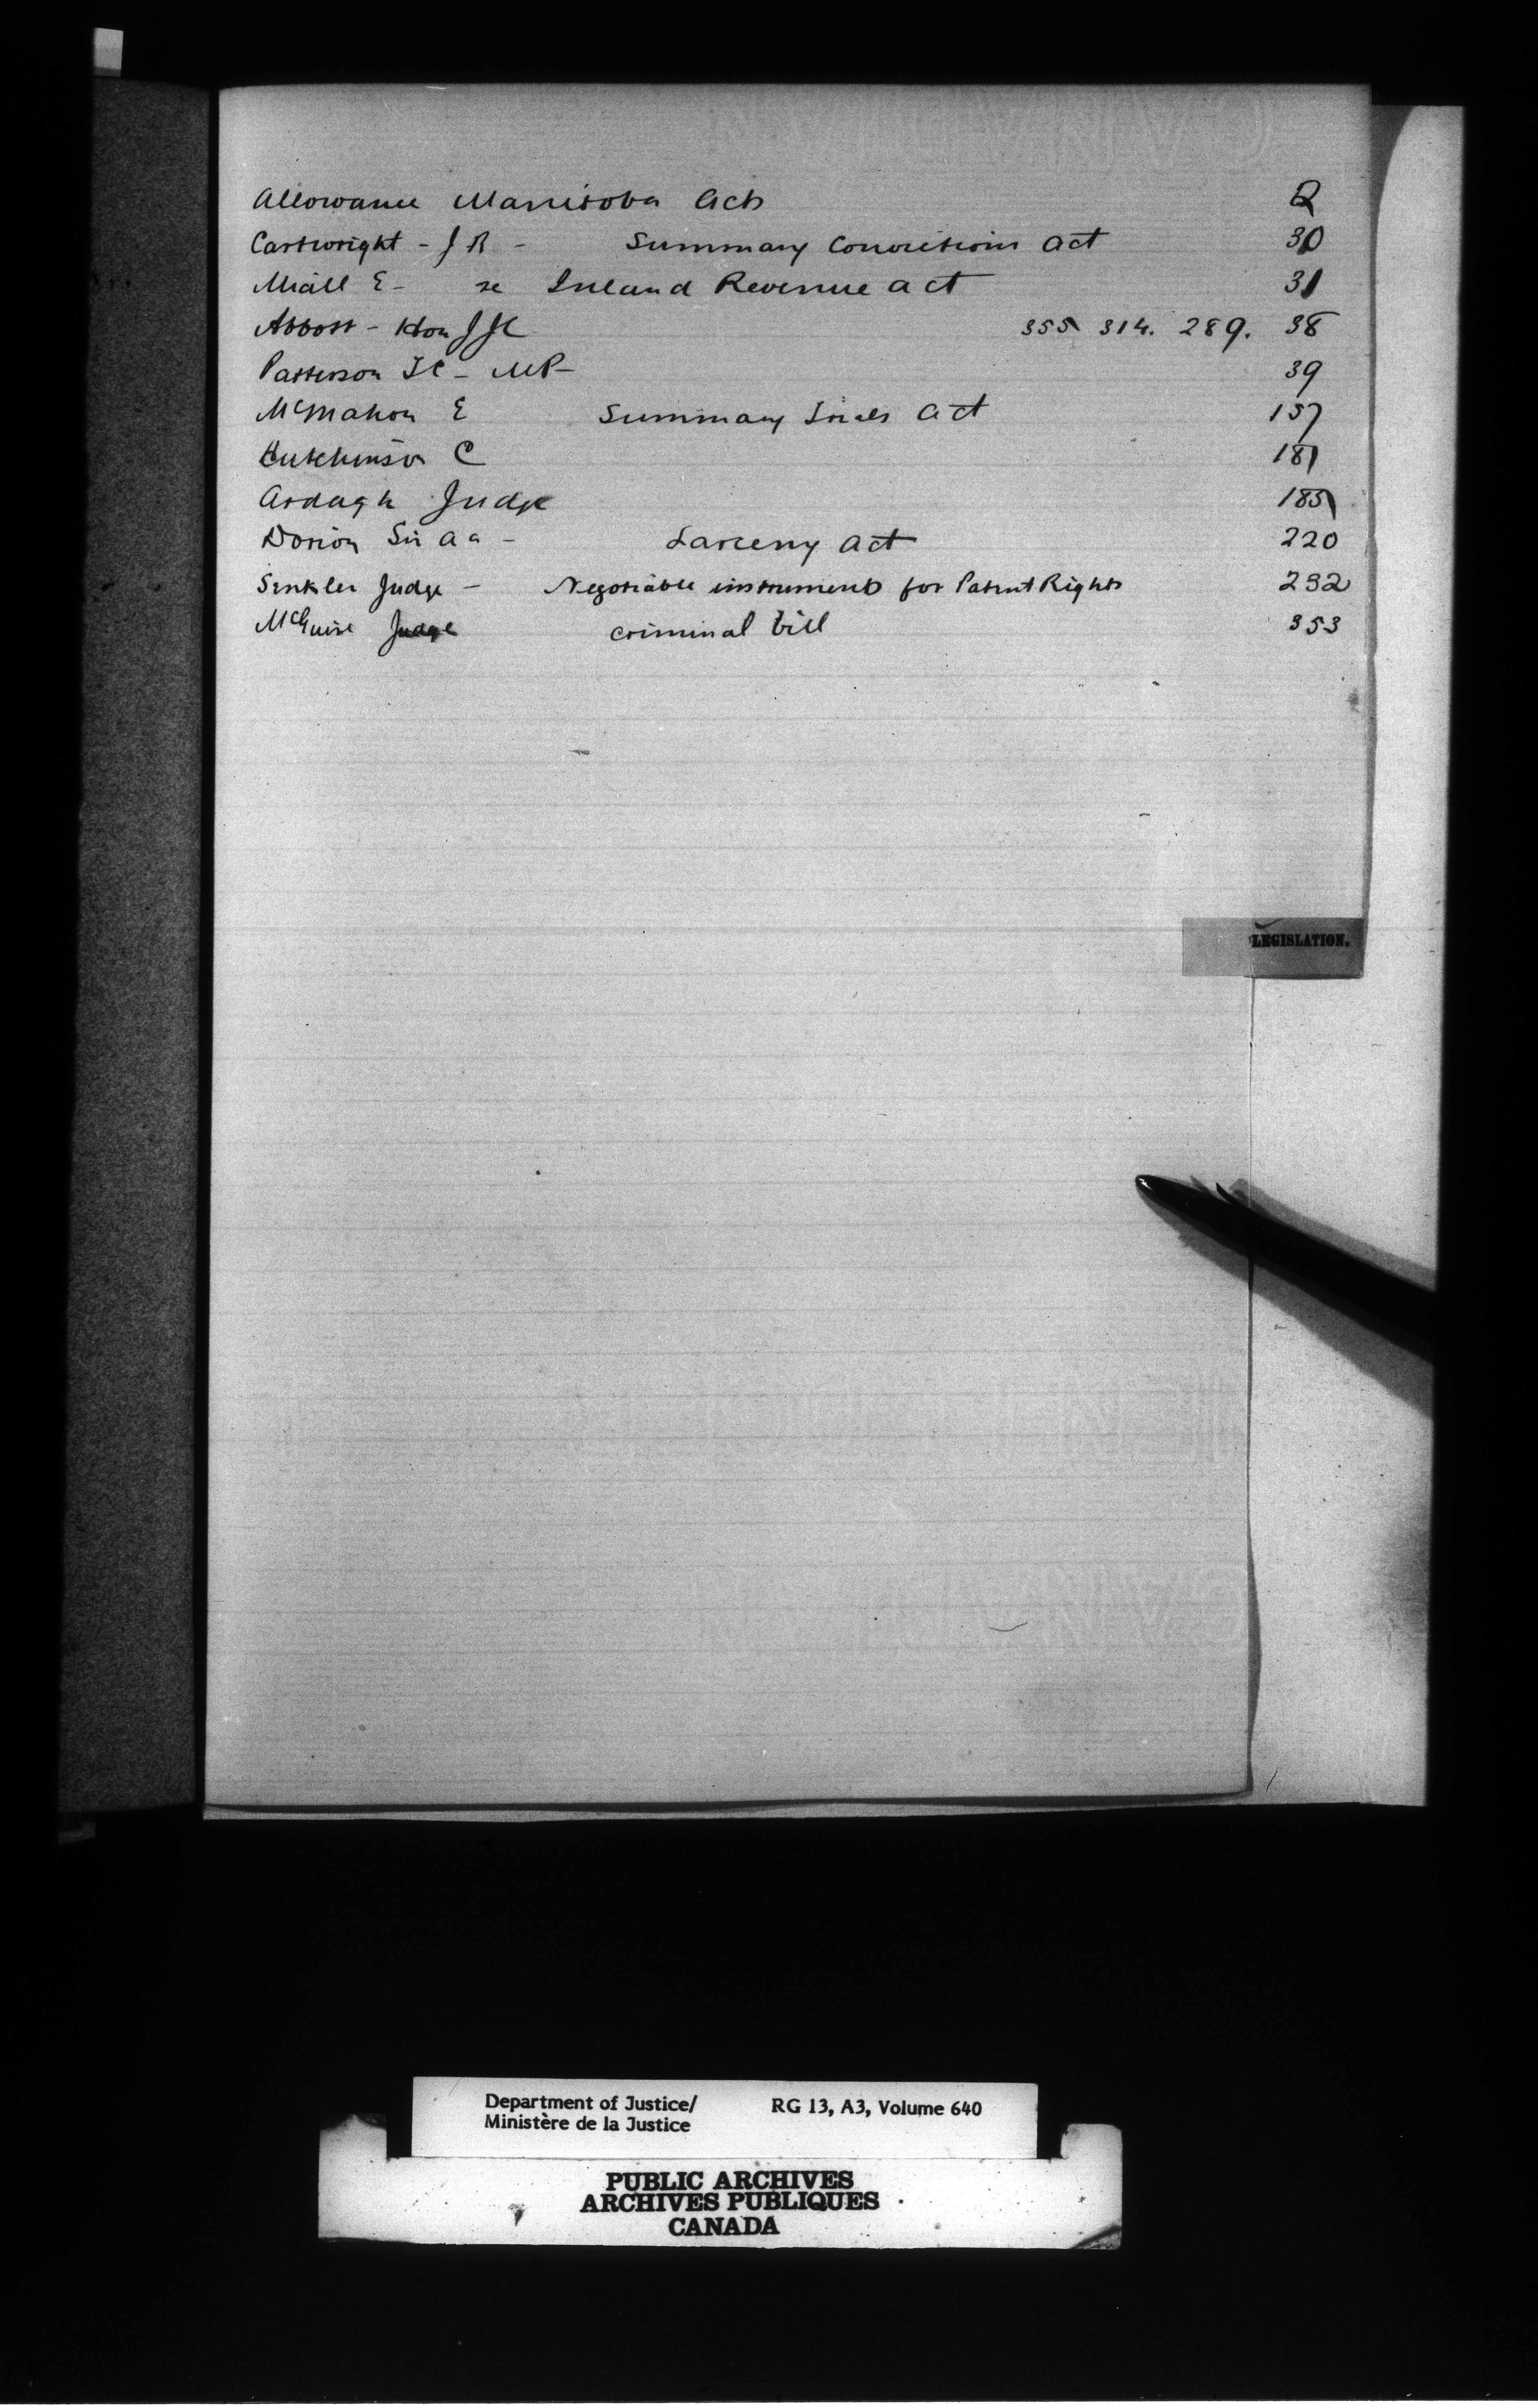 Allowance Manitoba Acts 2
Cartwright - J R - Summary Convictions Act 30
Miall E - re Inland Revenue Act 31
Abbott - Hon J J C 355 314. 289. 38
Patterson J C - MP - 39
McMahon E Summary Trials Act 157
Hutchinson C 181
Ardagh Judge 185
Dorion Sir A A - Larceny Act 220
Senkler Judge - Negotiable instruments for Patent Rights 232
McGuire Judge criminal bill 353
LEGISLATION.
Department of Justice/ RG 13, A3, Volume 640
Ministère de la Justice
PUBLIC ARCHIVES
ARCHIVES PUBLIQUES
CANADA